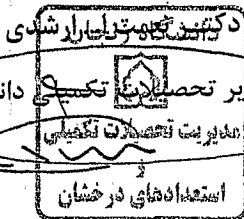 دکتر
ارشدی
یر تحصیلات تکمیلی دان
مدیریت تحصیلات تکمیلی
و
استعدادهای درخشان